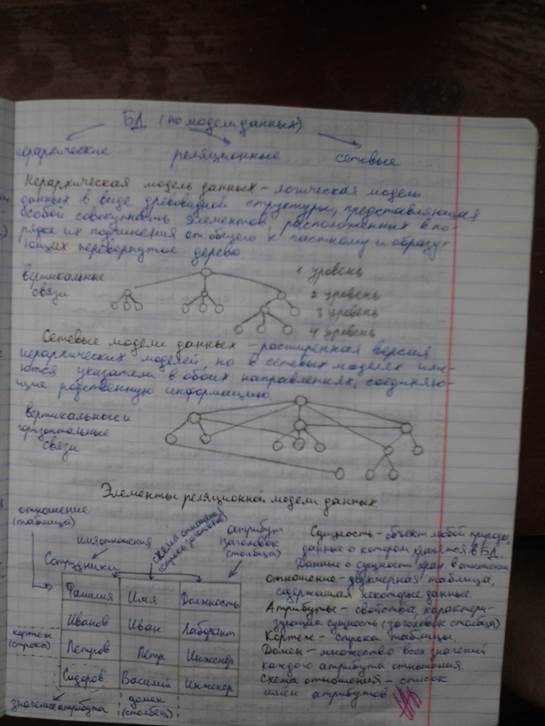 БД (по модели данных)
иерархические реляционные сетевые
Иерархическая модель данных - логическая модель
данных в виде древовидной структуры, представляющая
собой совокупность элементов, расположенных в по-
рядке их подчинения от общего к частному и образу-
ющих перевернутое дерево
вертикальные
связи
1 уровень
2 уровень
3 уровень
4 уровень
Сетевые модели данных - расширенная версия
иерархических моделей, но в сетевых моделях име-
ются указатели в обоих направлениях, соединяю-
щие родственную информацию
вертикальные и
горизонтальные
связи
Элементы реляционной модели данных
отношение
(таблица)
имя отношения
Сотрудники
схема отношения
(строка заголовков)
атрибут
(заголовок
столбца)
Фамилия Имя Должность
Иванов Иван Лаборант
Петров Петр Инженер
Сидоров Василий Инженер
кортеж
(строка)
значение атрибута
домен
(столбец)
Сущность - объект любой природы,
данные о котором хранятся в БД.
Данные о сущност хран в отношении
отношение - двумерная таблица,
содержащая некоторые данные.
Атрибуты - свойства, характери-
зующие сущность (заголовок столбца)
Кортеж - строка таблицы.
Домен - множество всех значений
каждого атрибута отношения.
Схема отношения - список
имён атрибутов